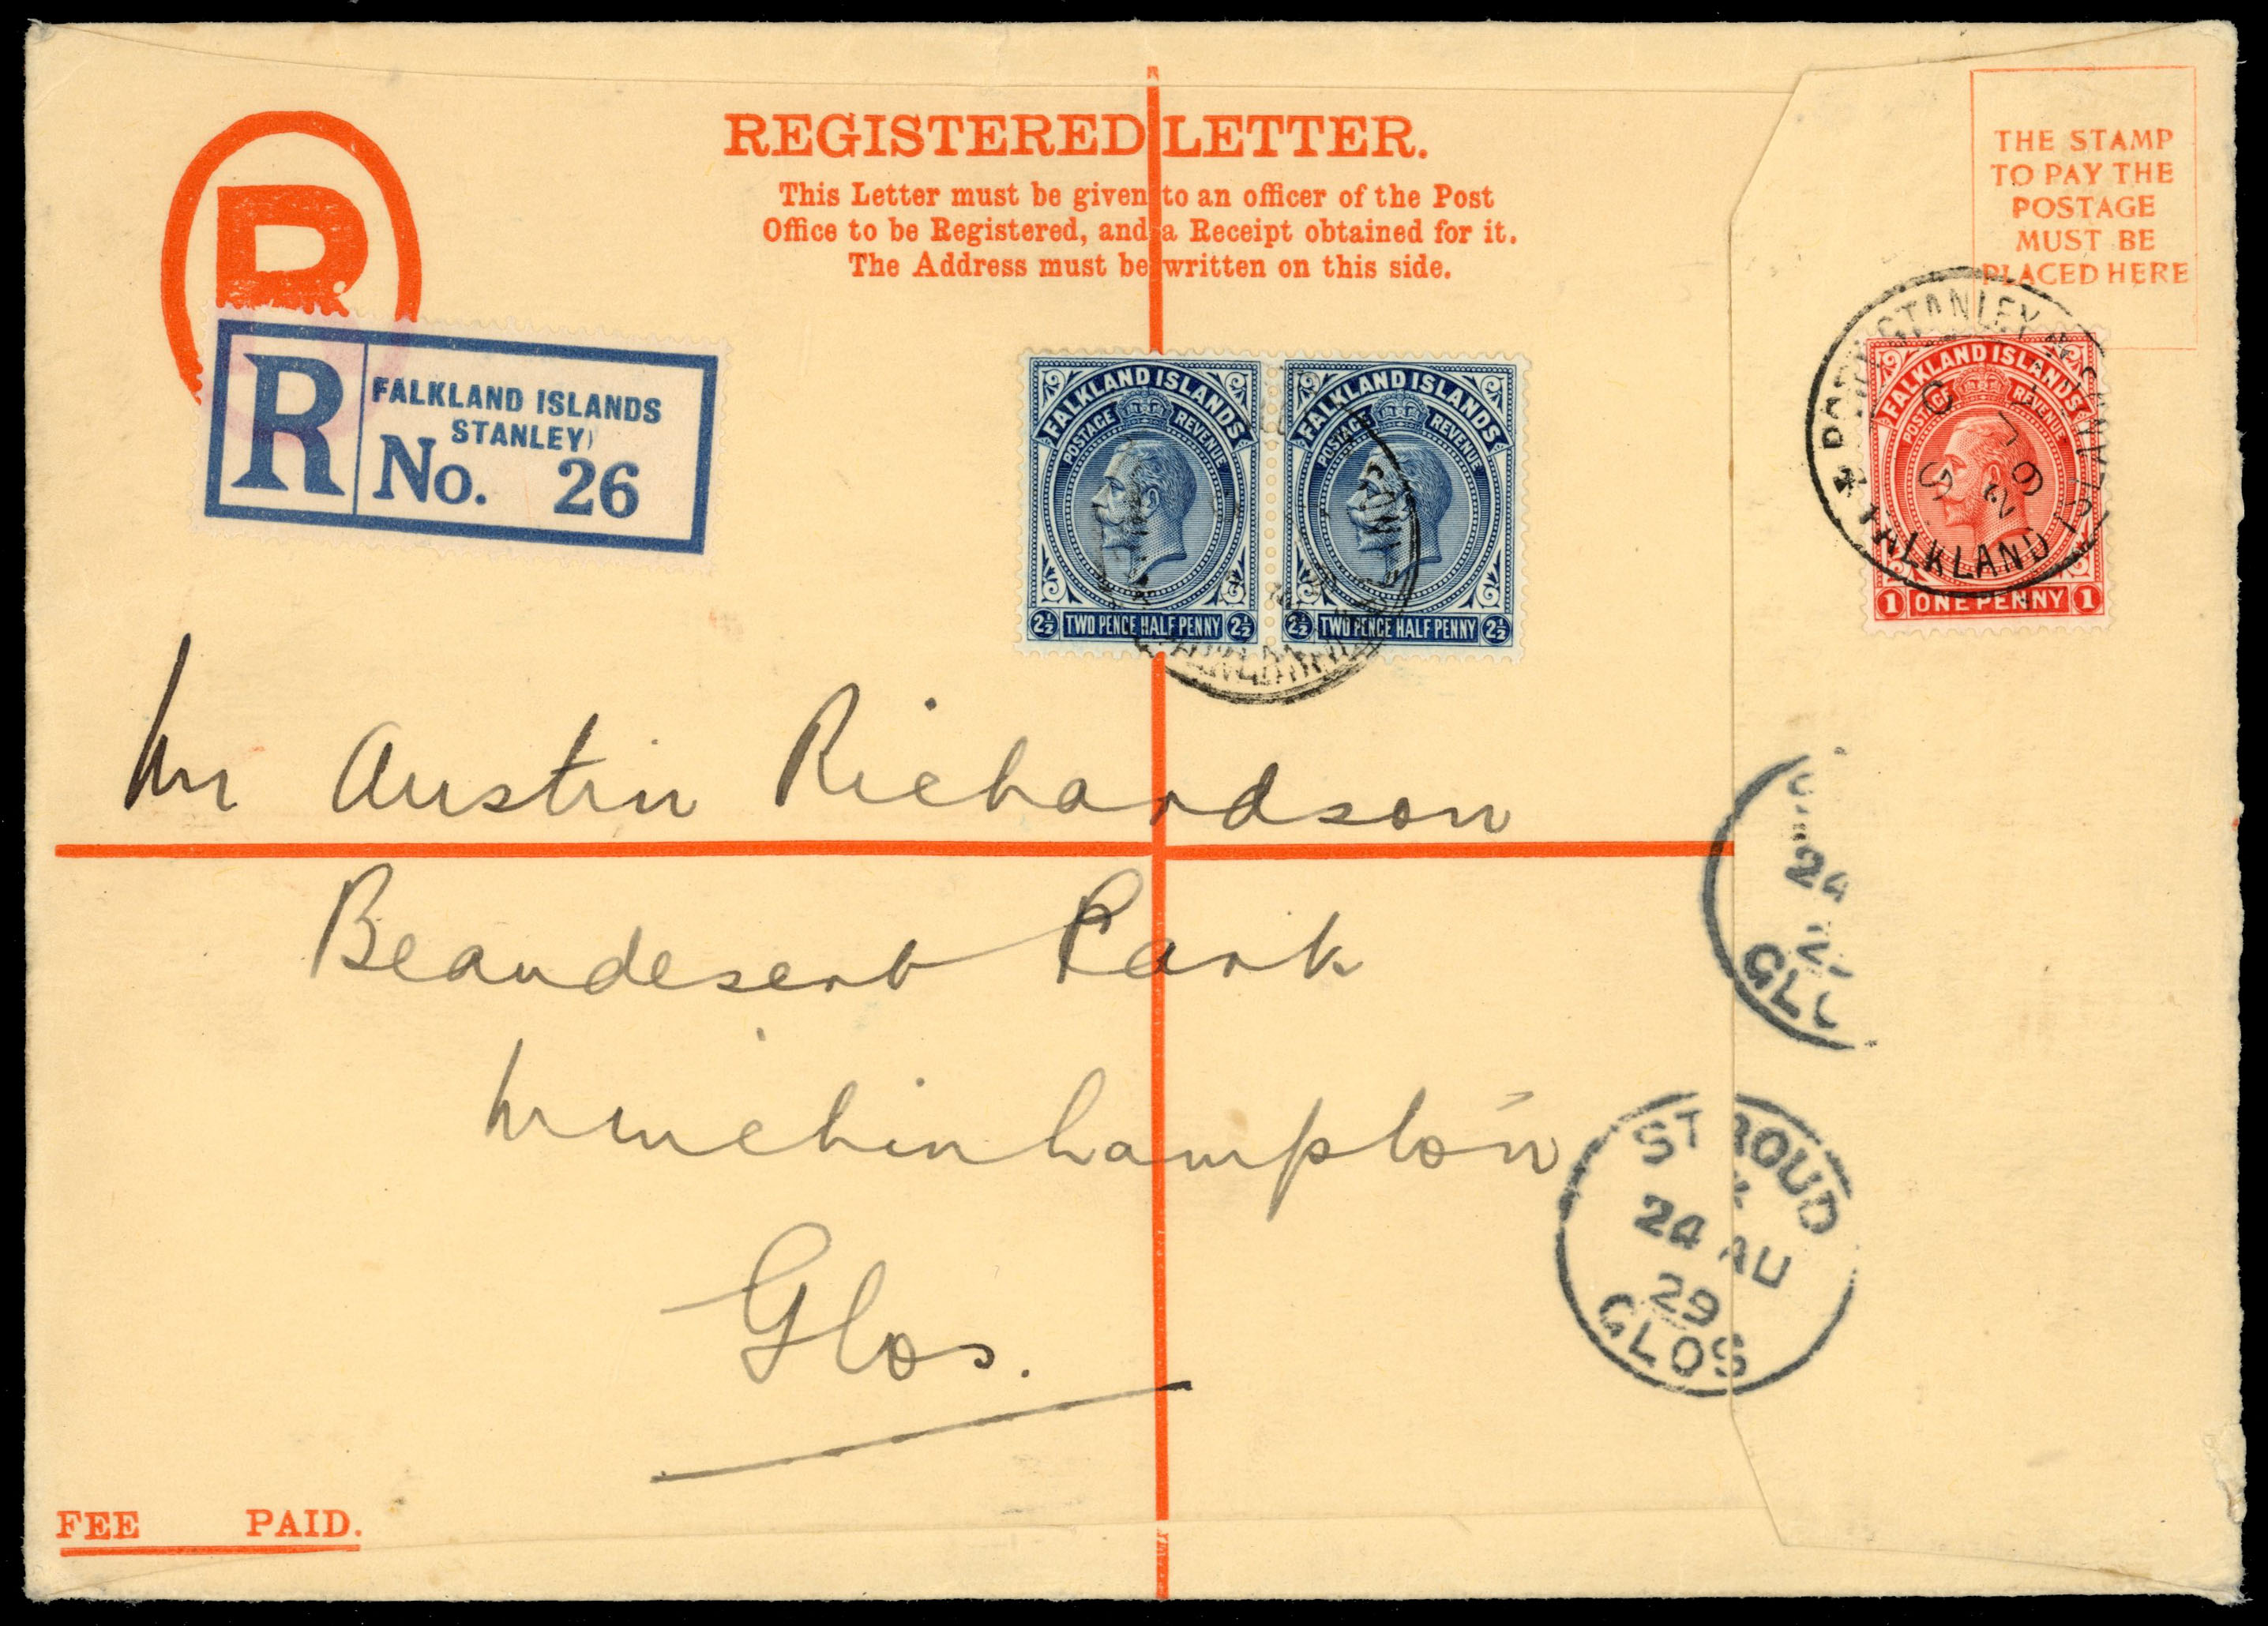 REGISTERED LETTER.
This Letter must be given to an officer of the Post
Office to be Registered, and a Receipt obtained for it.
The Address must be written on this side.
THE STAMP
TO PAY THE
POSTAGE
MUST BE
PLACED HERE
R
R
FALKLAND ISLANDS
STANLEY)
No. 26
FALKLAND ISLANDS
POSTAGE REVENUE
2½ TWO PENCE HALF PENNY 2½
FALKLAND ISLANDS
POSTAGE REVENUE
2½ TWO PENCE HALF PENNY 2½
PORT STANLEY
FALKLAND ISLANDS
FALKLAND ISLANDS
POSTAGE REVENUE
1 ONE PENNY 1
Mr Austin Richardson
Beaudesert Park
Minchinhampton
Glos.
24
STROUD
24 AU
29
GLOS
FEE PAID.